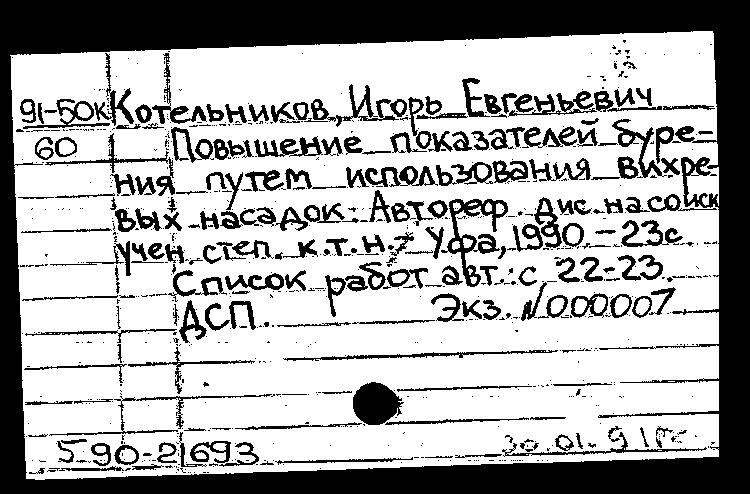 91-50к Котельников, Игорь Евгеньевич
60 Повышение показателей буре-
ния путем использования вихре-
вых насадок: Автореф. дис. на соиск
учен. степ. к.т.н. - Уфа, 1990. - 23с.
Список работ авт.: с. 22-23.
ДСП. Экз. N000007.
5 90-21693 30.01.91